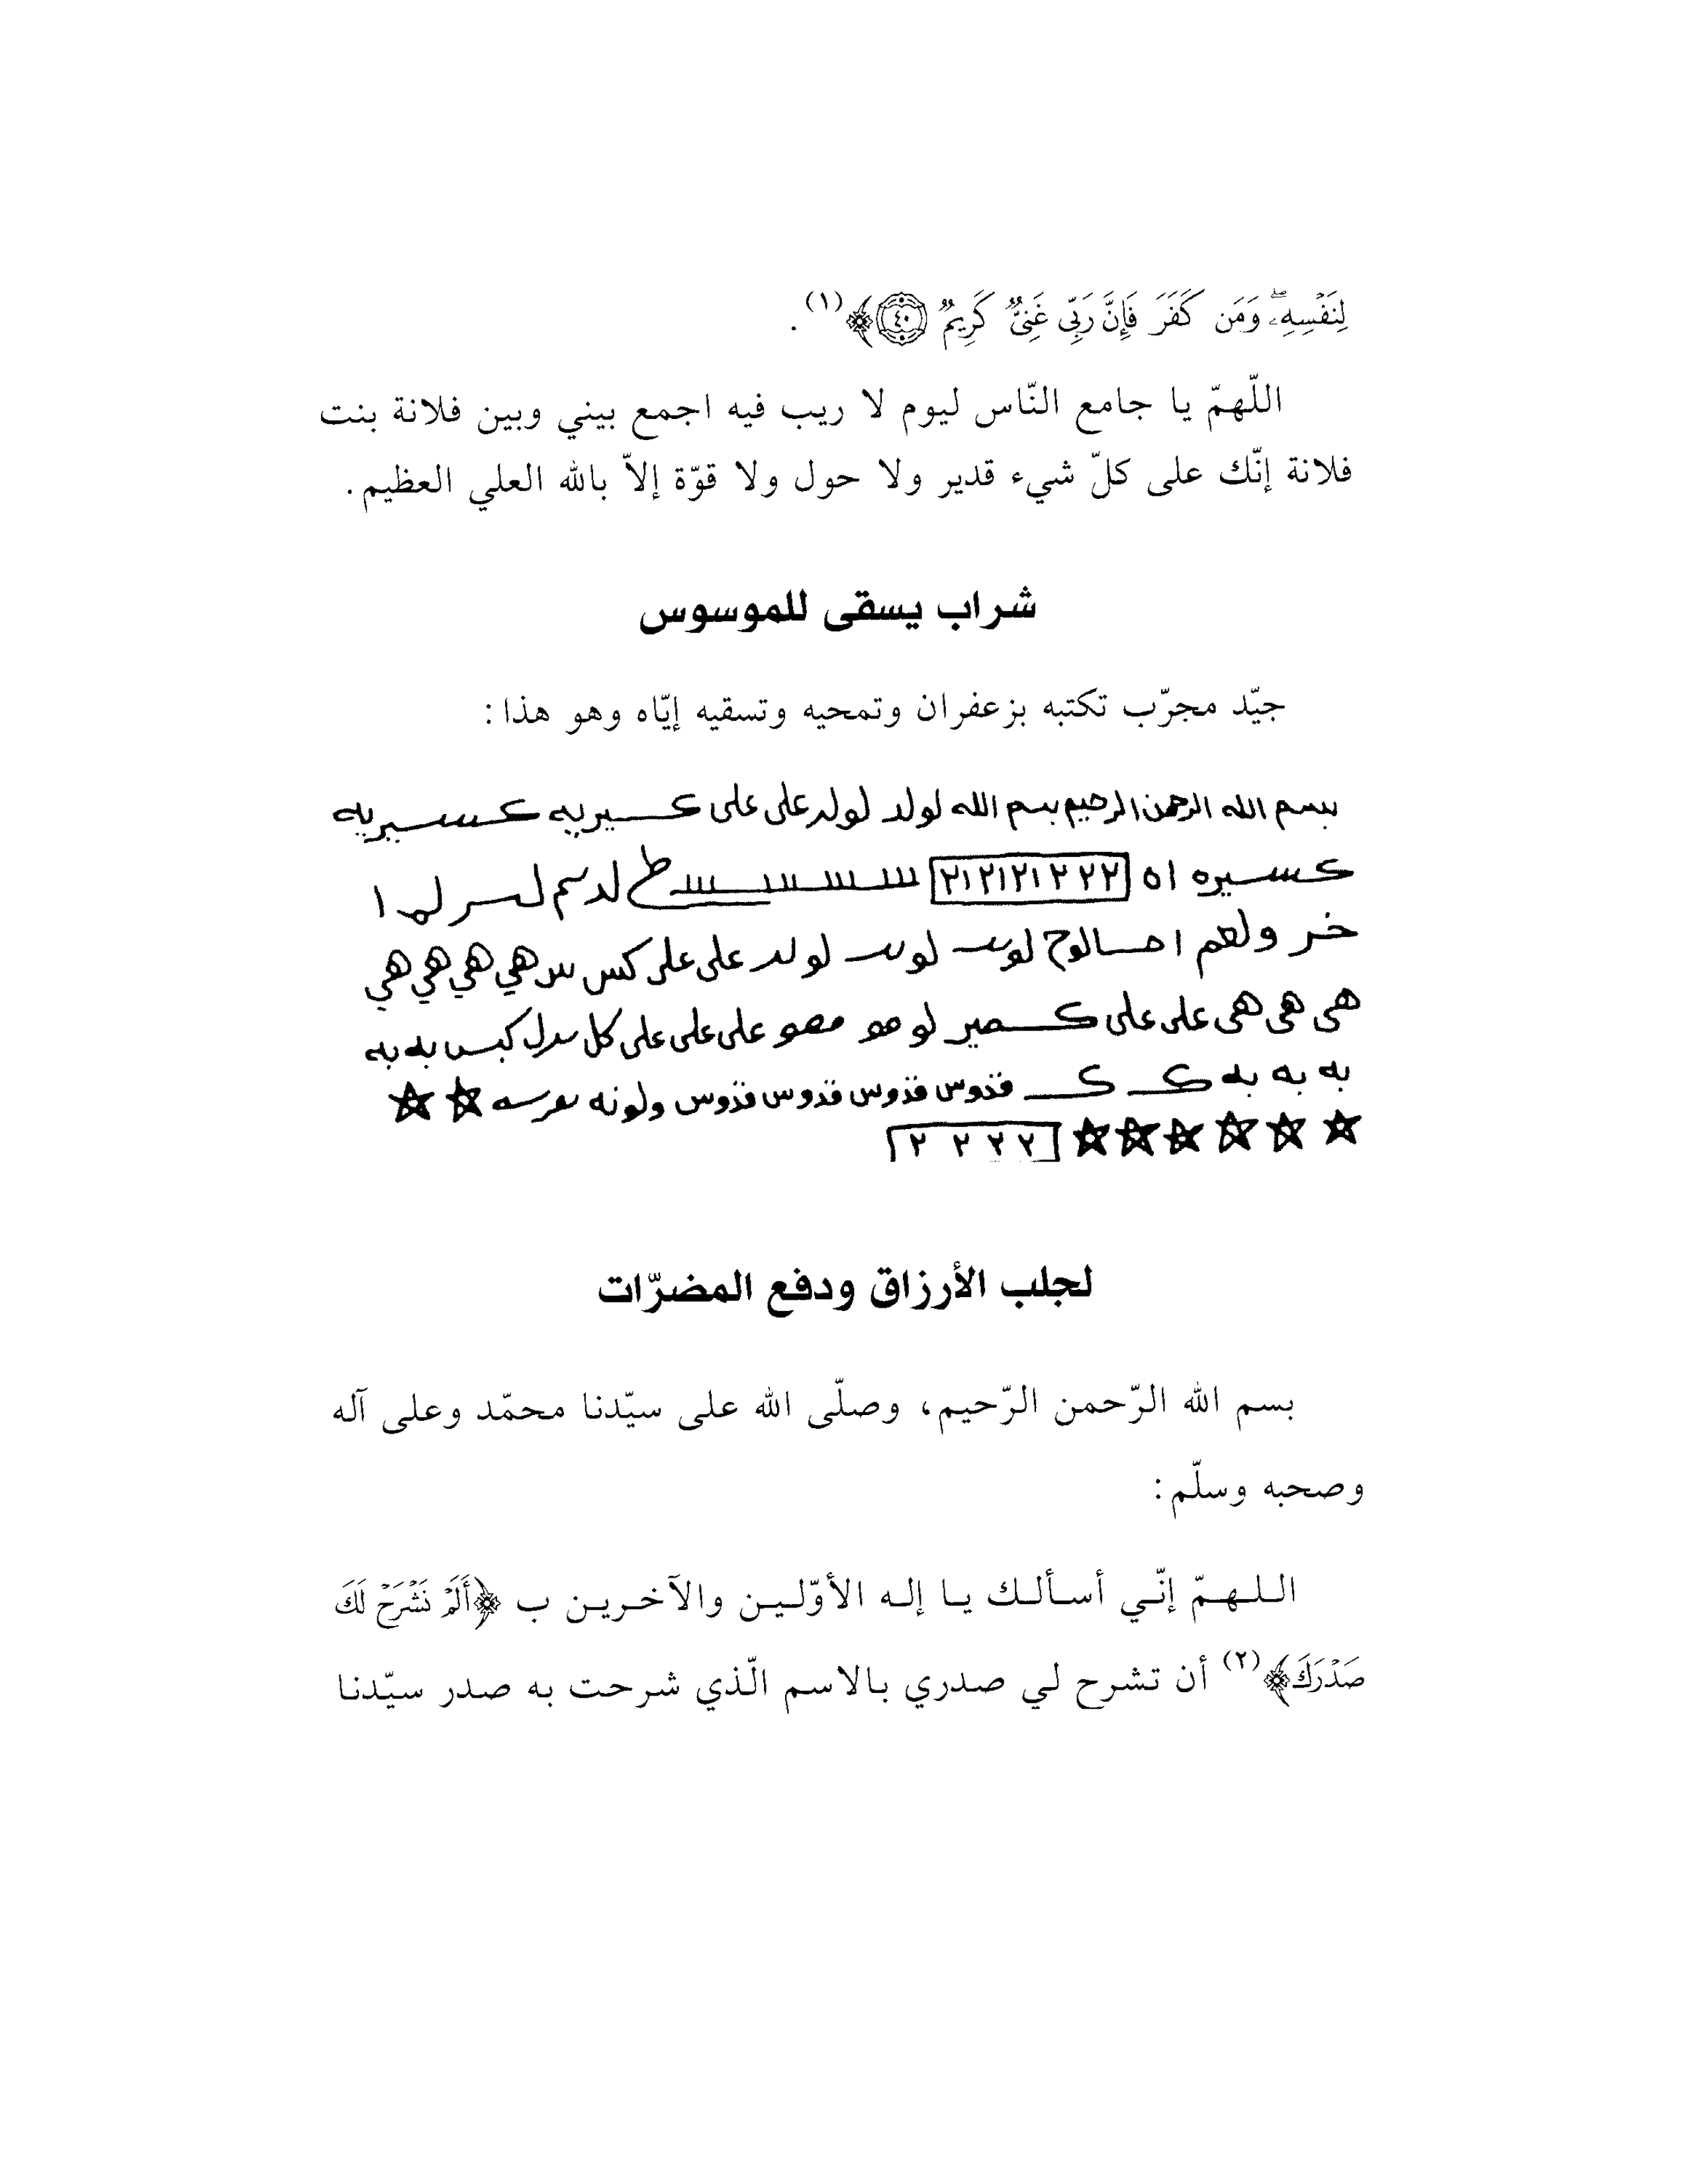 لِنَفْسِهِۦ ۖ وَمَن كَفَرَ فَإِنَّ رَبِّى غَنِىٌّ كَرِيمٌ ٤٠﴾(١).
اللّهمّ يا جامع النّاس ليوم لا ريب فيه اجمع بيني وبين فلانة بنت
فلانة إنّك على كلّ شيء قدير ولا حول ولا قوّة إلاّ بالله العلي العظيم.
شراب يسقى للموسوس
جيّد مجرّب تكتبه بزعفران وتمحيه وتسقيه إيّاه وهو هذا:
بسم الله الرحمن الرحيم بسم الله لولد لولد على على كسيريه كسيريه
كسيره اه ٢١٢١٢١٢٢٢
خر ولهم لولد على على كس هي هي هي هي
هى هى هى على على كصير لو هو مهو على على على كل به به
به به به كـ كـ قدوس قدوس قدوس قدوس قدوس ولونه
٢ ٢ ٢ ٢
لجلب الأرزاق ودفع المضرّات
بسم الله الرّحمن الرّحيم، وصلّى الله على سيّدنا محمّد وعلى آله
وصحبه وسلّم:
اللهمّ إنّي أسألك يا إله الأوّلين والآخرين ب ﴿أَلَمْ نَشْرَحْ لَكَ
صَدْرَكَ﴾(٢) أن تشرح لي صدري بالاسم الّذي شرحت به صدر سيّدنا